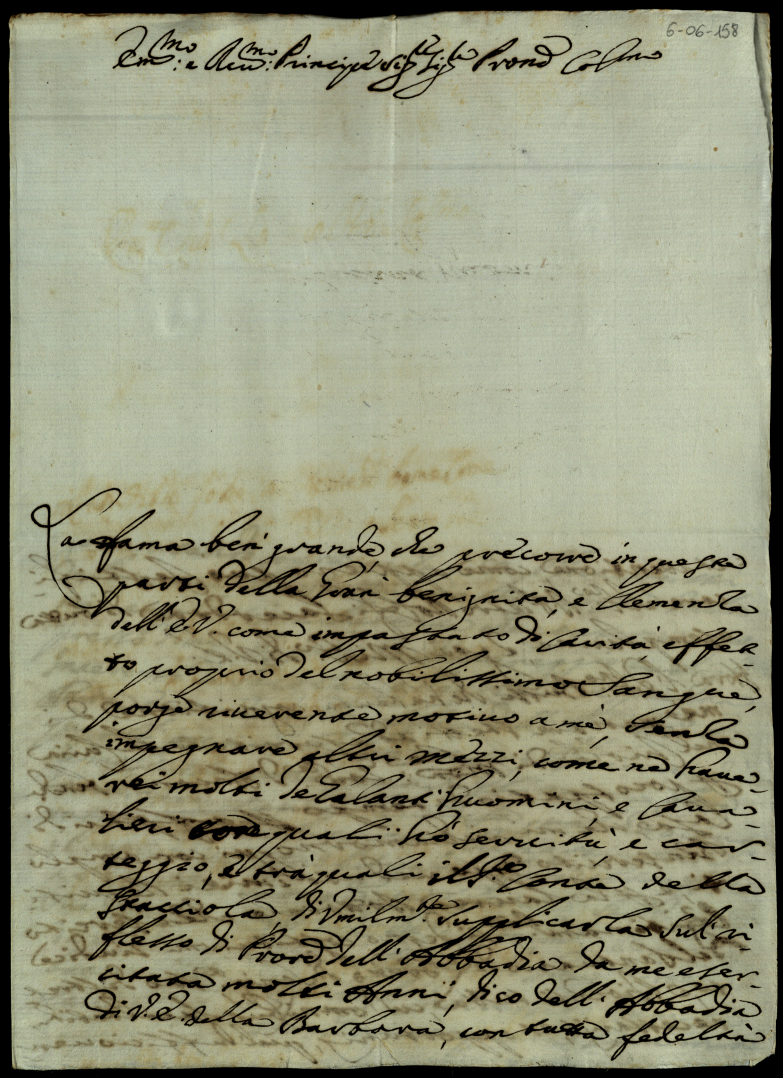 6-06-158
Em:mo e Rev:mo Principe Sig:re Sig:re Pron Col:mo
La fama ben grande che precorre in queste
parti della gran benignità, e Clemenza
dell'E.V. come impastato di Carità, effet-
to proprio del nobilissimo Sangue,
porge riverente motivo a me, senza
impegnare altri mezzi, come ne have-
rei molti de Galant'huomini, e Cava-
lieri quali hò servitù, e car-
teggio, e trà quali il Sr Conte della
Stacciola, di umilm:te supplicarla sul ri-
flesso di Prore dell'Abbadia da me eser-
citata molti Anni, dico dell'Abbadia
di V.E. della Barbara, con tutta fedeltà